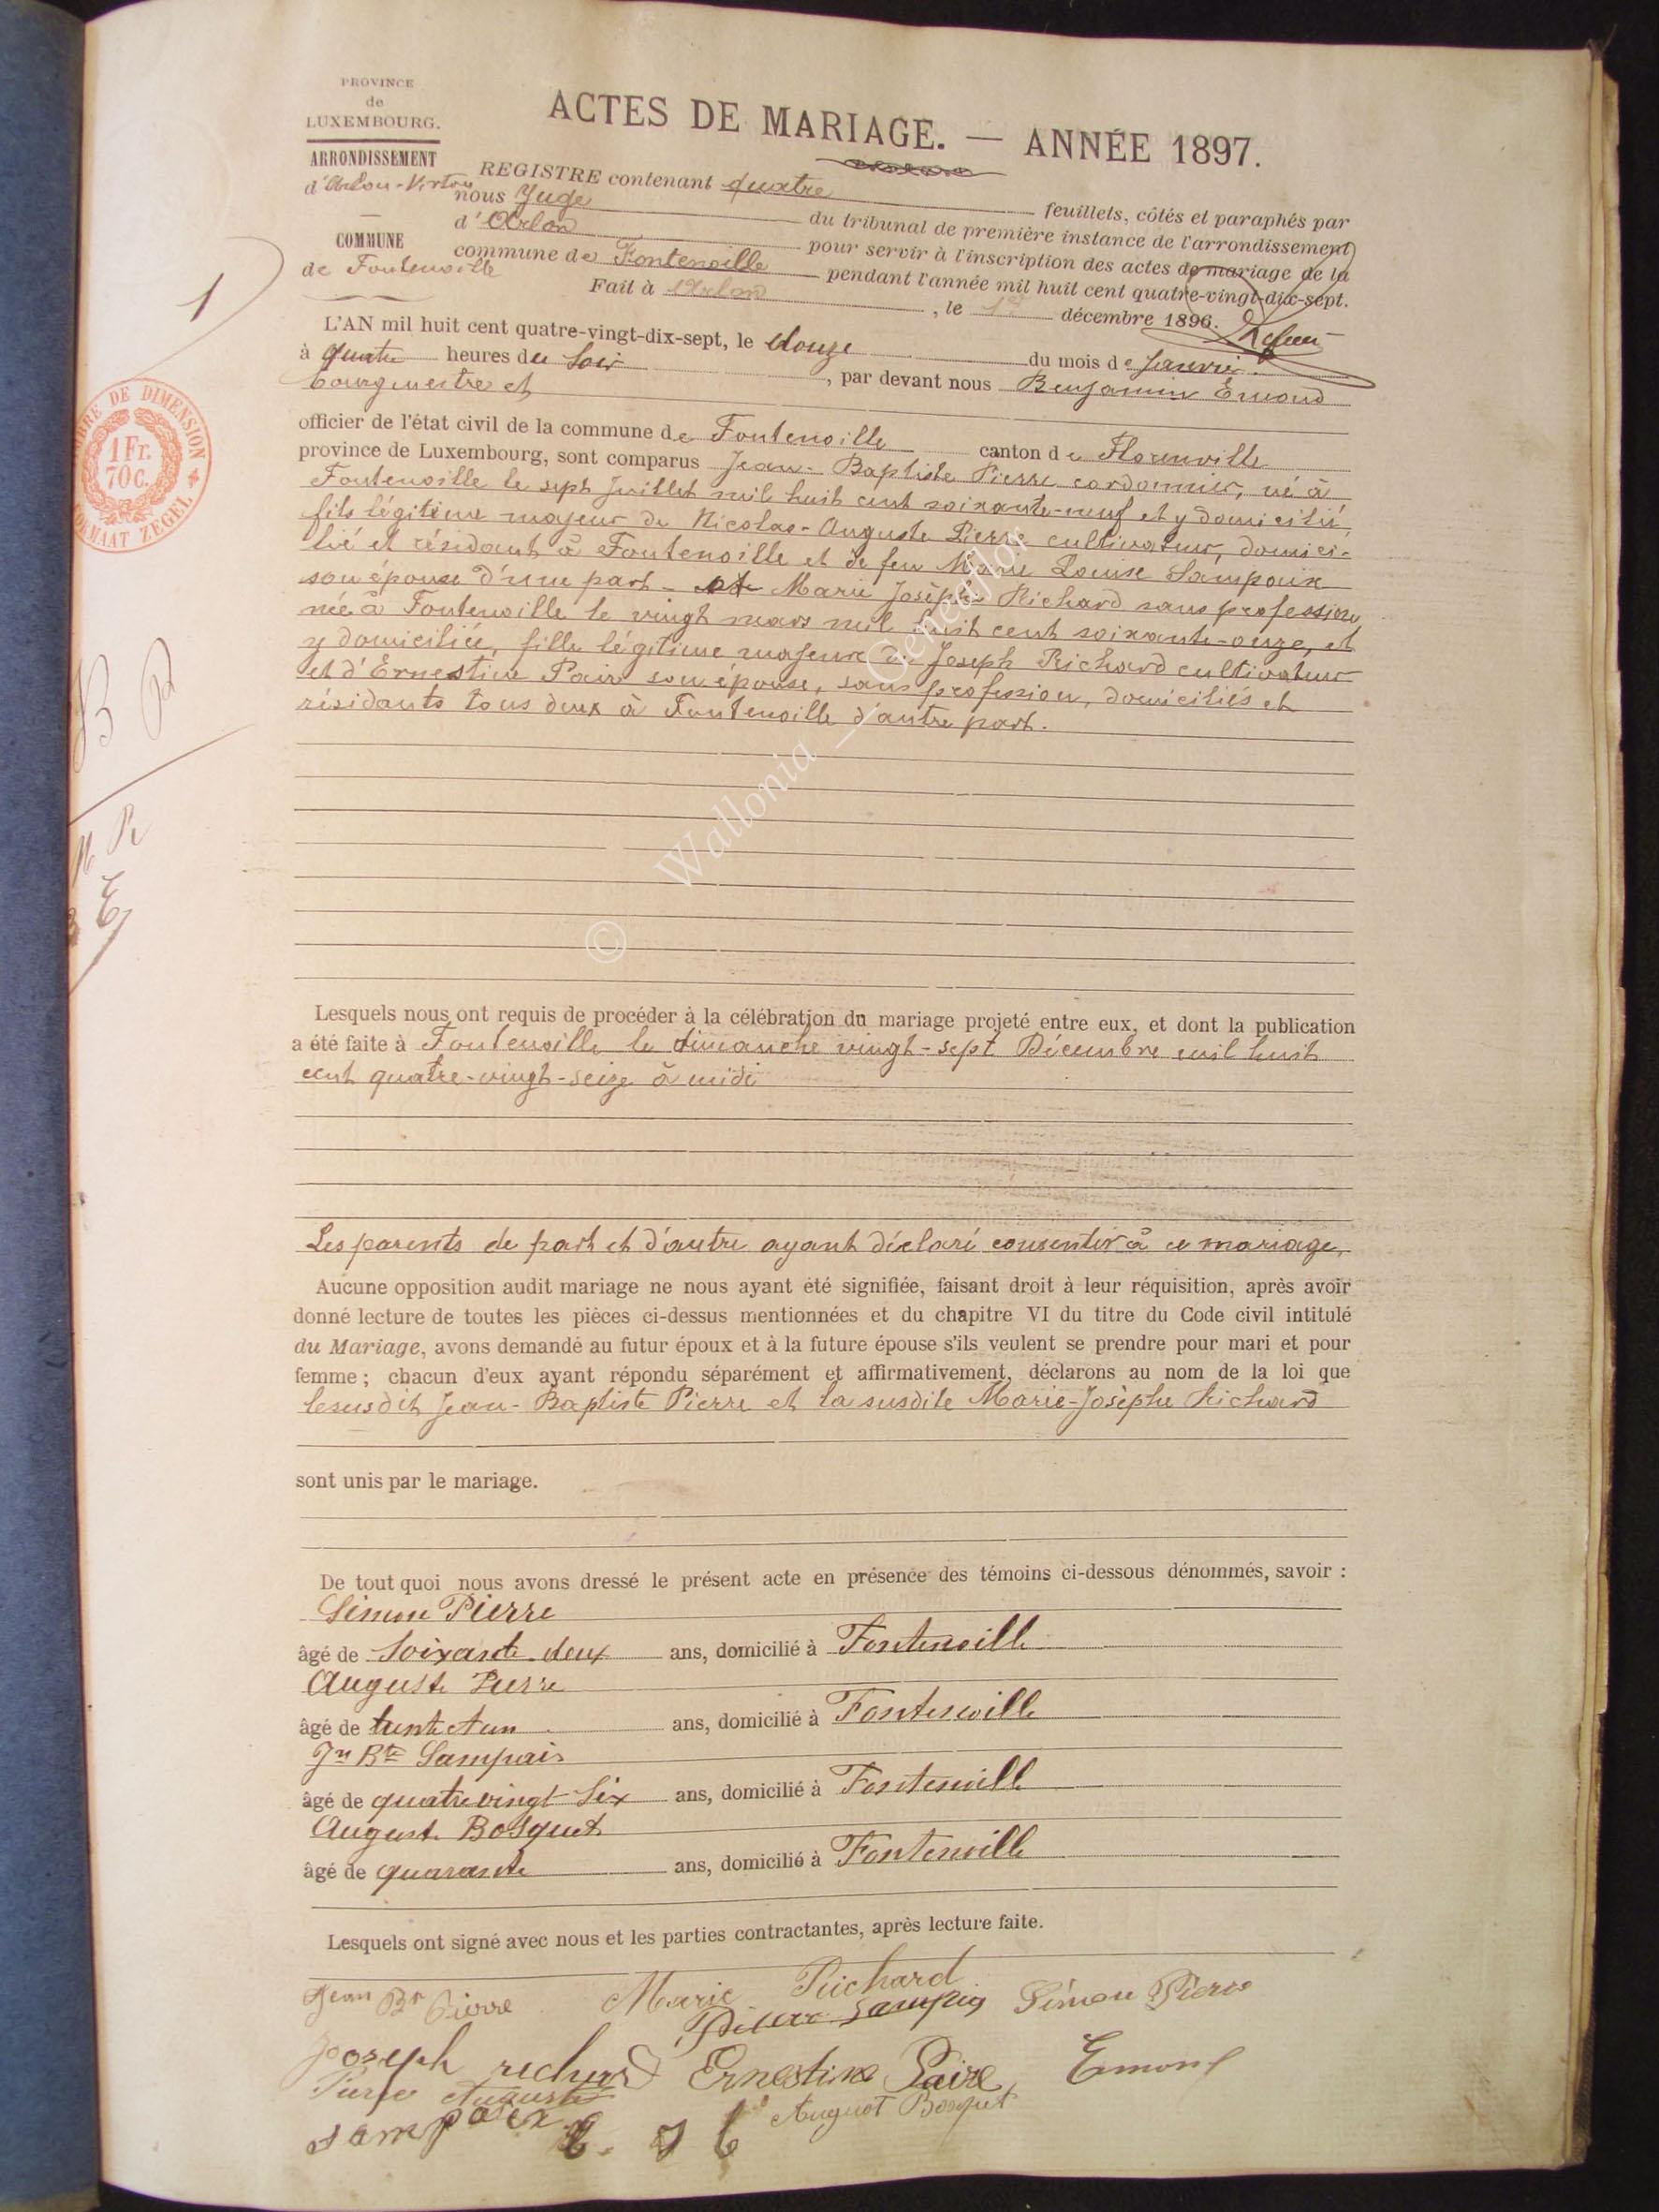 PROVINCE
de
LUXEMBOURG.
ARRONDISSEMENT
d'Arlon-Virton
COMMUNE
de Fontenoille
ACTES DE MARIAGE. — ANNÉE 1897.
REGISTRE contenant quatre feuillets, côtés et paraphés par
nous Juge du tribunal de première instance de l'arrondissement
d'Arlon pour servir à l'inscription des actes de mariage de la
commune de Fontenoille pendant l'année mil huit cent quatre-vingt-dix-sept.
Fait à Arlon, le 1er décembre 1896.
1
L'AN mil huit cent quatre-vingt-dix-sept, le douze du mois de Janvier
à quatre heures du soir, par devant nous Benjamin Emond
bourgmestre et
officier de l'état civil de la commune de Fontenoille canton de Florenville
province de Luxembourg, sont comparus Jean-Baptiste Pierre cordonnier, né à
Fontenoille le sept Juillet mil huit cent soixante-neuf et y domicilié
fils légitime majeur de Nicolas-Auguste Pierre cultivateur, domici-
lié et résidant à Fontenoille et de feu Marie Louise Sampaix
son épouse d'une part - et Marie Josèphe Richard sans profession
née à Fontenoille le vingt mars mil huit cent soixante-onze, et
y domiciliée, fille légitime majeure de Joseph Richard cultivateur
et d'Ernestine Paire son épouse, sans profession, domiciliés et
résidants tous deux à Fontenoille d'autre part.
TIMBRE DE DIMENSION
1 Fr.
70 c.
FORMAAT ZEGEL
B P
M R
E
© Wallonia - Geneafor
Lesquels nous ont requis de procéder à la célébration du mariage projeté entre eux, et dont la publication
a été faite à Fontenoille le dimanche vingt-sept Décembre mil huit
cent quatre-vingt-seize à midi
Les parents de part et d'autre ayant déclaré consentir à ce mariage,
Aucune opposition audit mariage ne nous ayant été signifiée, faisant droit à leur réquisition, après avoir
donné lecture de toutes les pièces ci-dessus mentionnées et du chapitre VI du titre du Code civil intitulé
du Mariage, avons demandé au futur époux et à la future épouse s'ils veulent se prendre pour mari et pour
femme ; chacun d'eux ayant répondu séparément et affirmativement, déclarons au nom de la loi que
lesusdit Jean-Baptiste Pierre et la susdite Marie-Josèphe Richard
sont unis par le mariage.
De tout quoi nous avons dressé le présent acte en présence des témoins ci-dessous dénommés, savoir :
Simon Pierre
âgé de Soixante deux ans, domicilié à Fontenoille
Auguste Pierre
âgé de trente et un ans, domicilié à Fontenoille
Jn Bte Sampaix
âgé de quatre vingt Six ans, domicilié à Fontenoille
August Bosquet
âgé de quarante ans, domicilié à Fontenoille
Lesquels ont signé avec nous et les parties contractantes, après lecture faite.
Jean Bte Pierre Marie Richard Simon Pierre
Joseph richard Ernestine Paire Emond
Pierre Auguste
August Bosquet
sampaix